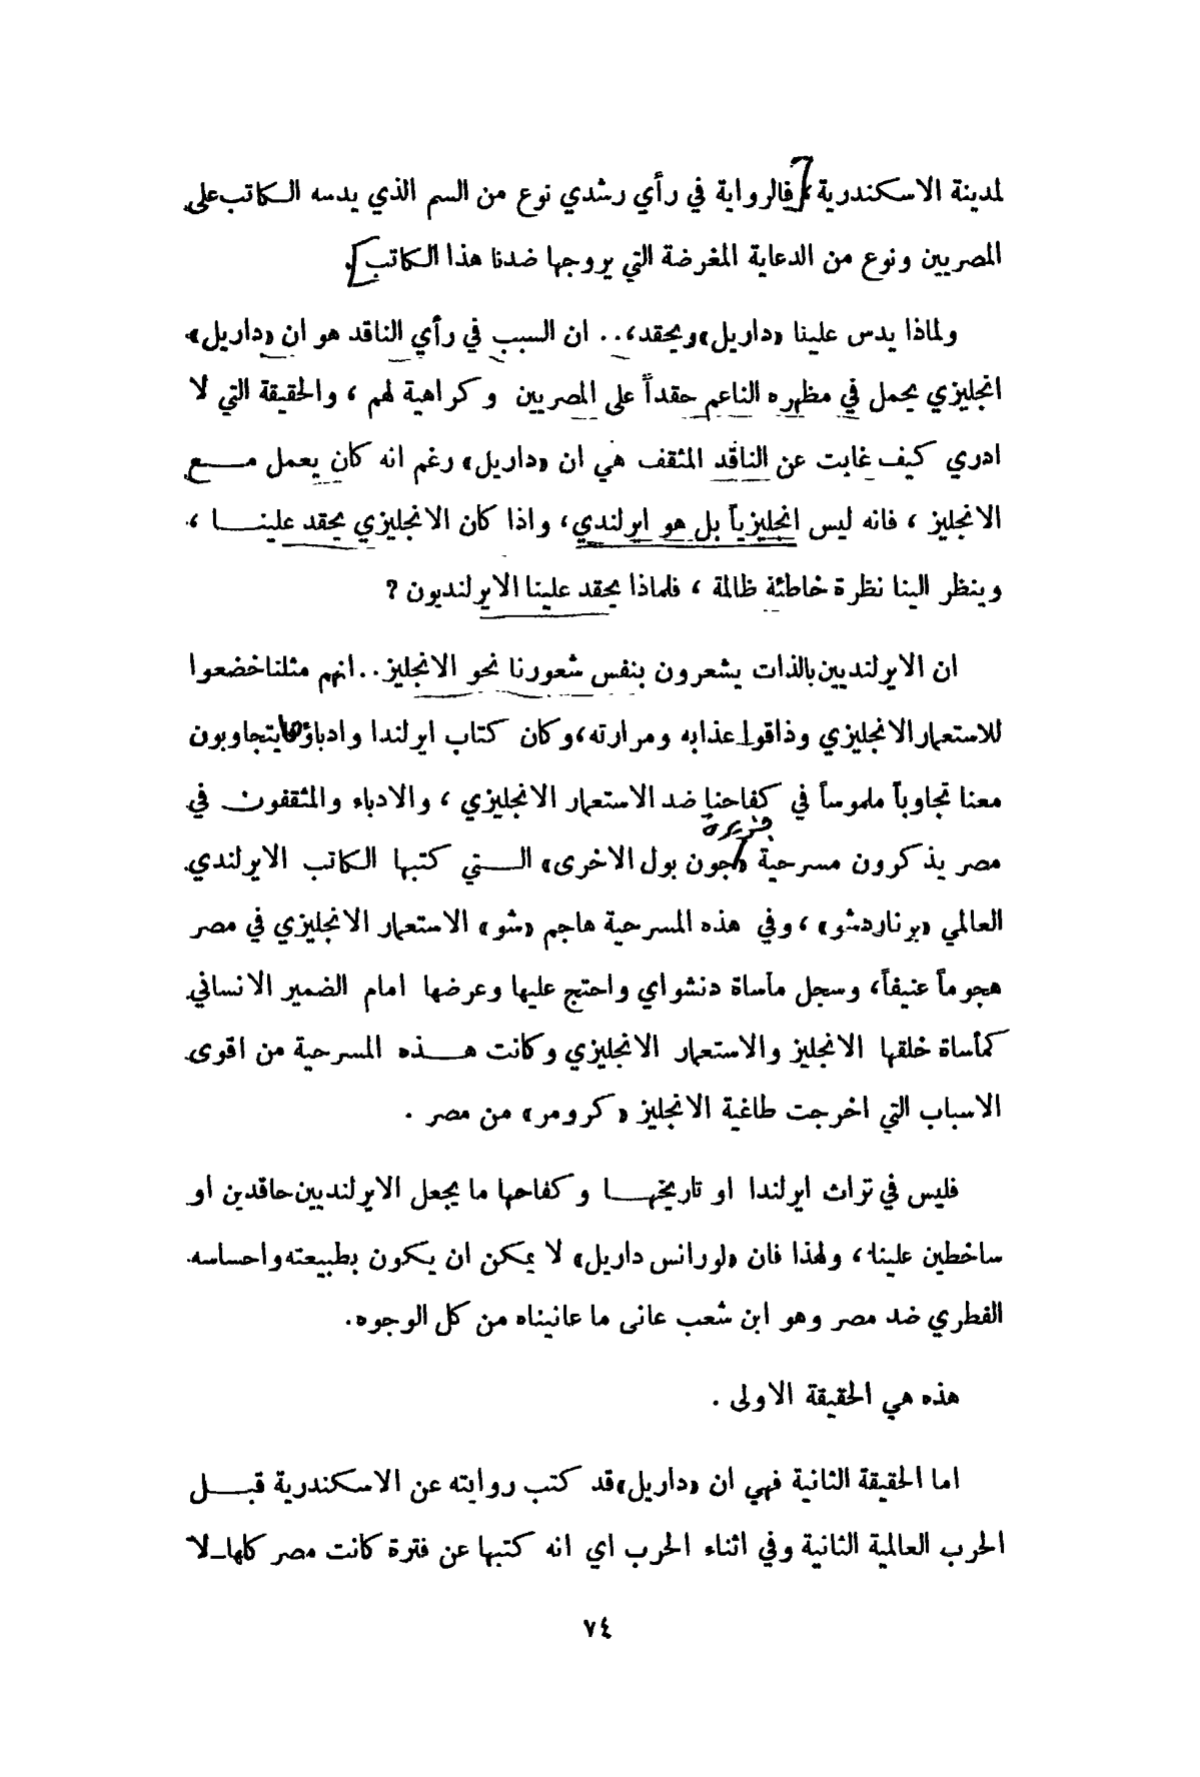 لمدينة الاسكندرية ، فالرواية في رأي رشدي نوع من السم الذي يدسه الكاتب على
المصريين ونوع من الدعاية المغرضة التي يروجها ضدنا هذا الكاتب .
ولماذا يدس علينا «داريل» ويحقد ، . . ان السبب في رأي الناقد هو ان «داريل»
انجليزي يحمل في مظهره الناعم حقداً على المصريين وكراهية لهم ، والحقيقة التي لا
ادري كيف غابت عن الناقد المثقف هي ان «داريل» رغم انه كان يعمل مع
الانجليز ، فانه ليس انجليزياً بل هو ايرلندي، واذا كان الانجليزي يحقد علينا ،
وينظر الينا نظرة خاطئة ظالمة ، فلماذا يحقد علينا الايرلنديون ؟
ان الايرلنديين بالذات يشعرون بنفس شعورنا نحو الانجليز . . انهم مثلنا خضعوا
للاستعمار الانجليزي وذاقوا عذابه ومرارته، وكان كتاب ايرلندا وادباؤها يتجاوبون
معنا تجاوباً ملموساً في كفاحنا ضد الاستعمار الانجليزي ، والادباء والمثقفون في
جزيرة
مصر يذكرون مسرحية «جون بول الاخرى» التي كتبها الكاتب الايرلندي
العالمي «برناردشو» ، وفي هذه المسرحية هاجم «شو» الاستعمار الانجليزي في مصر
هجوماً عنيفاً، وسجل مأساة دنشواي واحتج عليها وعرضها امام الضمير الانساني
كمأساة خلقها الانجليز والاستعمار الانجليزي وكانت هذه المسرحية من اقوى
الاسباب التي اخرجت طاغية الانجليز «كرومر» من مصر .
فليس في تراث ايرلندا او تاريخها وكفاحها ما يجعل الايرلنديين حاقدين او
ساخطين علينا ، ولهذا فان «لورانس داريل» لا يمكن ان يكون بطبيعته واحساسه
الفطري ضد مصر وهو ابن شعب عانى ما عانيناه من كل الوجوه.
هذه هي الحقيقة الاولى .
اما الحقيقة الثانية فهي ان «داريل» قد كتب روايته عن الاسكندرية قبل
الحرب العالمية الثانية وفي اثناء الحرب اي انه كتبها عن فترة كانت مصر كلها ـ لا
٧٤